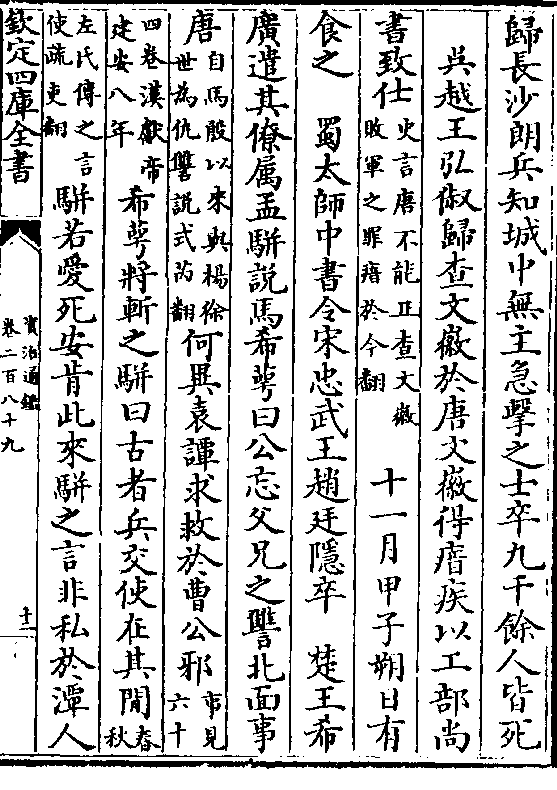 歸長沙朗兵知城中無主急擊之士卒九千餘人皆死
吳越王弘俶歸查文徽於唐文徽得瘖疾以工部尚
書致仕史言唐不能正查文徽敗軍之罪瘖於今翻十一月甲子朔日有
食之 蜀太師中書令宋忠武王趙廷隱卒 楚王希
廣遣其僚屬孟駢說馬希萼曰公忘父兄之讐北面事
唐自馬殷以來與楊徐世為仇讐說式芮翻何異袁譚求救於曹公邪事見六十
四卷漢獻帝建安八年希萼將斬之駢曰古者兵交使在其閒春秋
左氏傳之言使疏吏翻駢若愛死安肯此來駢之言非私於潭人
欽定四庫全書
資治通鑑
卷二百八十九
十二